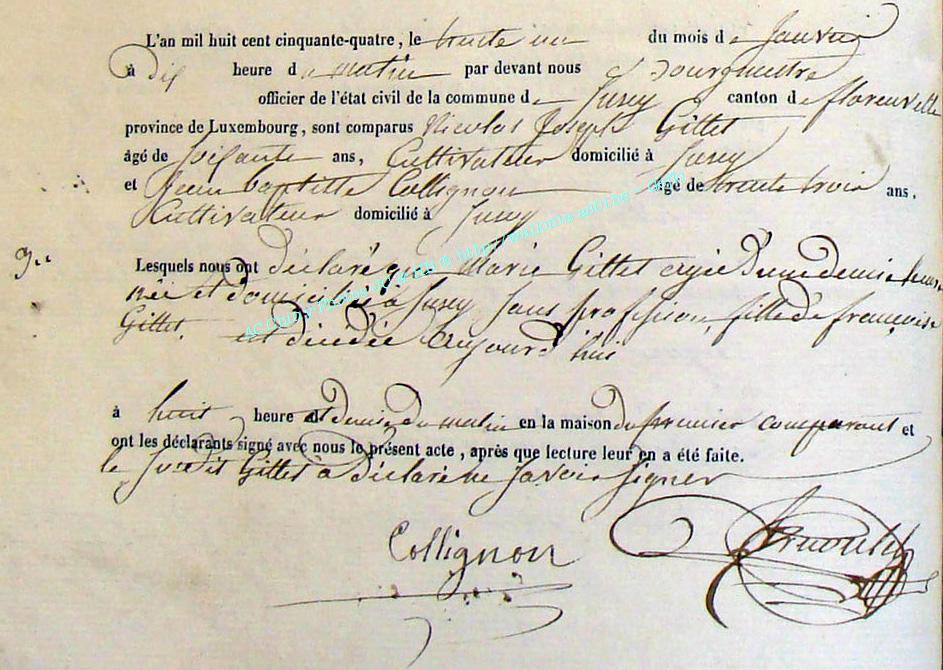 L'an mil huit cent cinquante-quatre, le trente un du mois de Janvier
à dix heure du matin par devant nous Bourgmestre
officier de l'état civil de la commune de Suxy canton de florenville
province de Luxembourg, sont comparus Nicolas Joseph Gillet
âgé de soixante ans, Cultivateur domicilié à Suxy
et Jean baptiste Collignon âgé de trente trois ans,
Cultivateur domicilié à Suxy
Lesquels nous ont déclaré que Marie Gillet agée d'une demie heure
née et domiciliée à Suxy sans profession, fille de françoise
Gillet. est décédée aujourd'hui
à huit heure et demie du matin en la maison du premier comparant et
ont les déclarants signé avec nous le présent acte, après que lecture leur en a été faite.
le susdit Gillet a déclaré ne savoir signer
Collignon